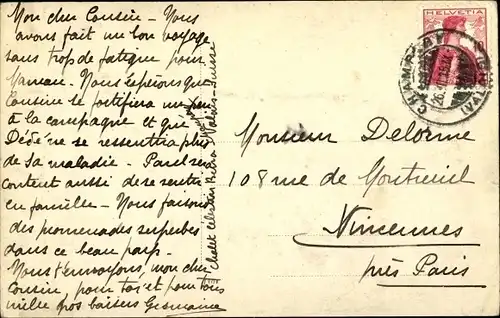 Mon cher Cousin - Nous
avons fait un bon voyage
sans trop de fatigue pour
Maman. Nous espérons que
Cousine se fortifiera un peu
à la campagne et que
Dédé ne se ressentira plus
de sa maladie. Paul sera
content aussi de se sentir
en famille - Nous faisons
des promenades superbes
dans ce beau pays.
Nous t'envoyons, mon cher
Cousin, pour toi et pour tous
mille gros baisers Germaine
Chalet Célestin
Valais - Suisse
HELVETIA
CHAMPERY
Monsieur Delorme
108 rue de Montreuil
Vincennes
près Paris